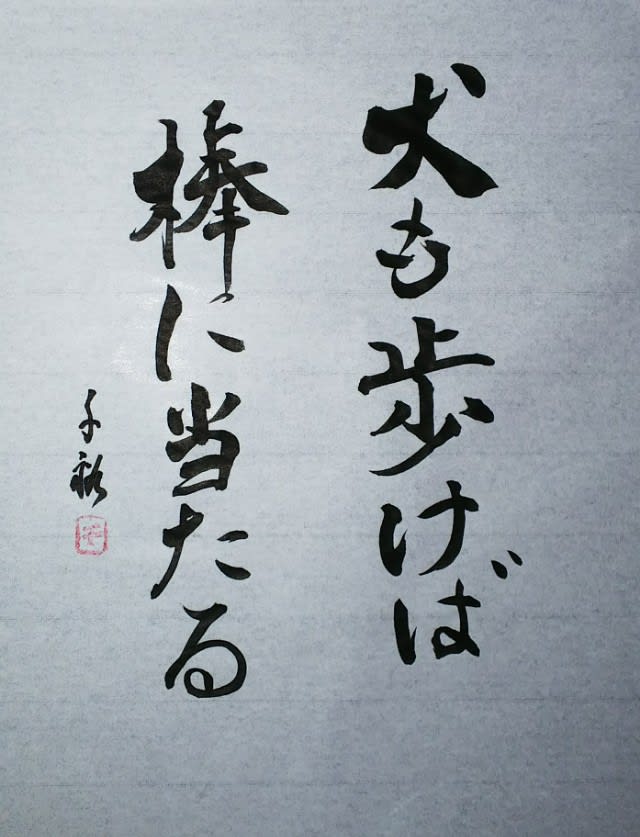 犬も歩けば
棒に当たる